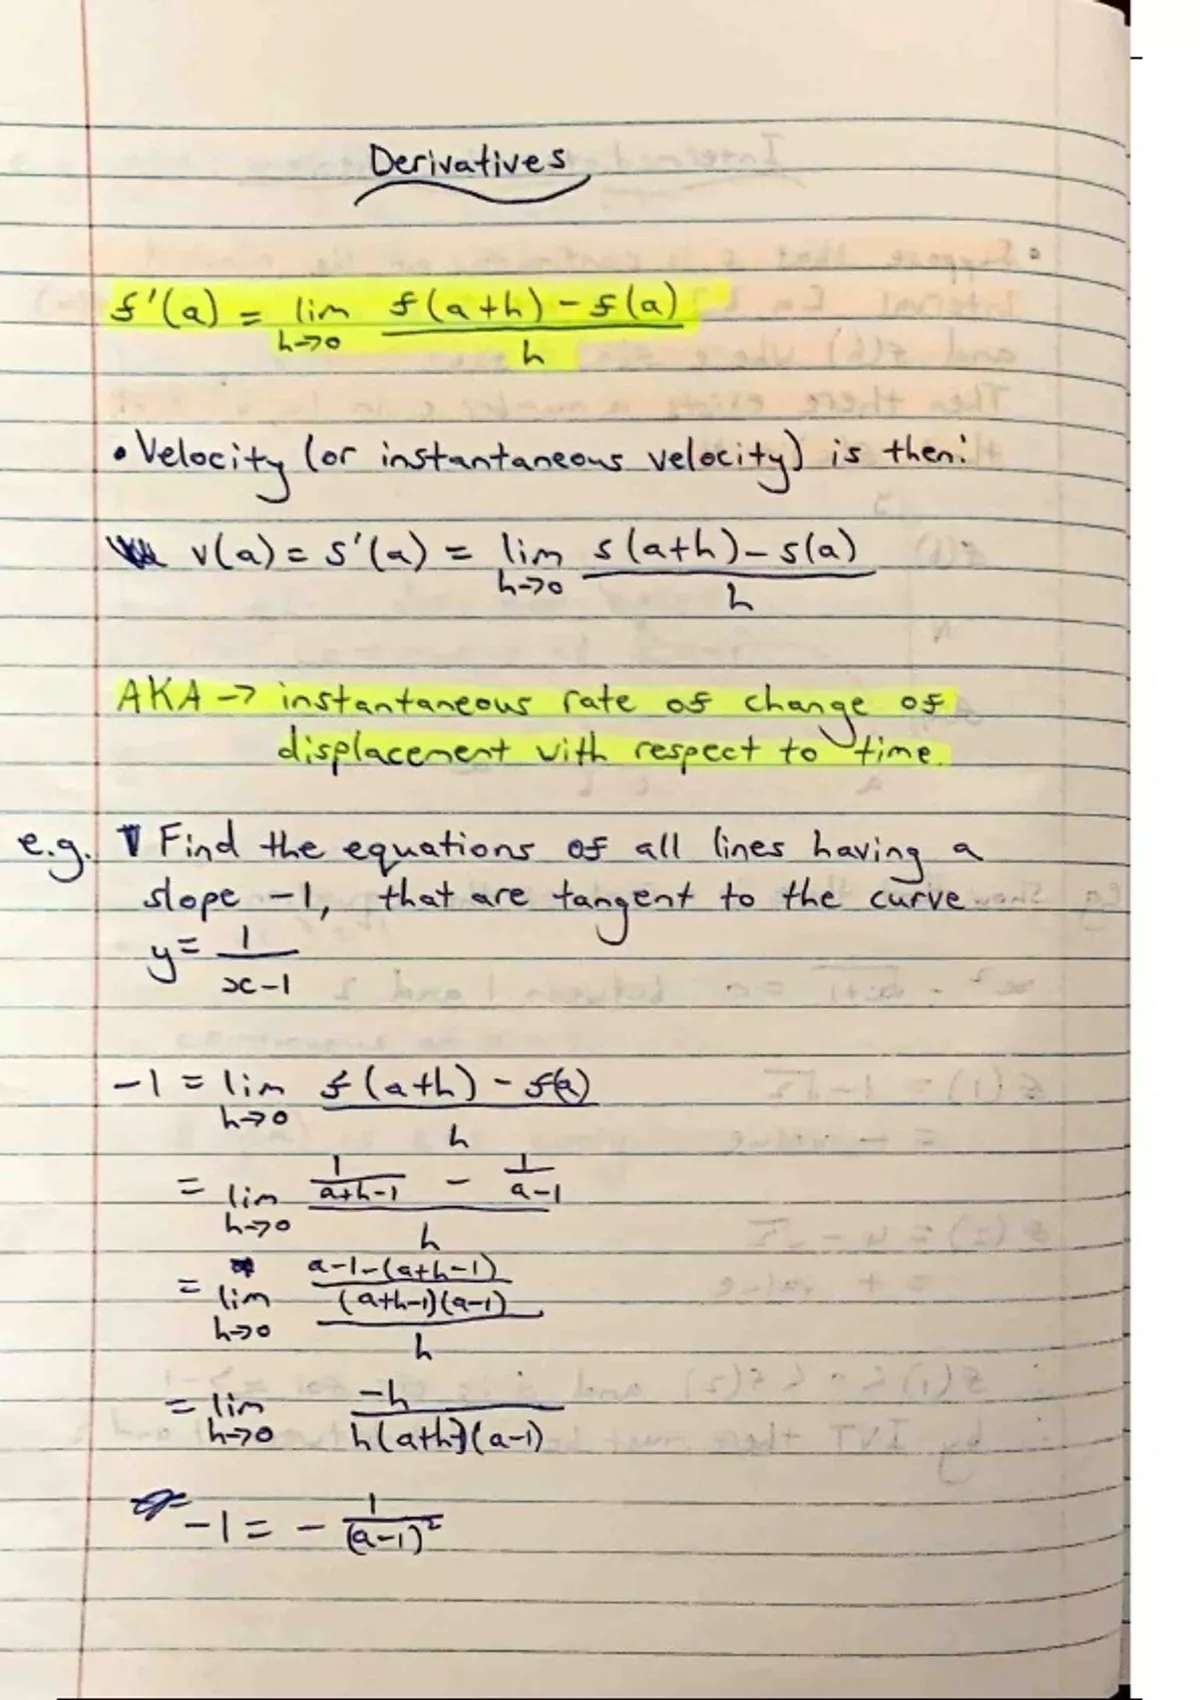 Derivatives
f'(a) = lim h→0 f(a+h) - f(a) / h
• Velocity (or instantaneous velocity) is then:
v(a) = s'(a) = lim h→0 s(a+h) - s(a) / h
AKA → instantaneous rate of change of
displacement with respect to time.
e.g. Find the equations of all lines having a
slope -1, that are tangent to the curve
y = 1 / x-1
-1 = lim h→0 f(a+h) - f(a) / h
= lim h→0 1/a+h-1 - 1/a-1 / h
= lim h→0 a-1-(a+h-1) / (a+h-1)(a-1) / h
= lim h→0 -h / h(a+h-1)(a-1)
-1 = - 1 / (a-1)²